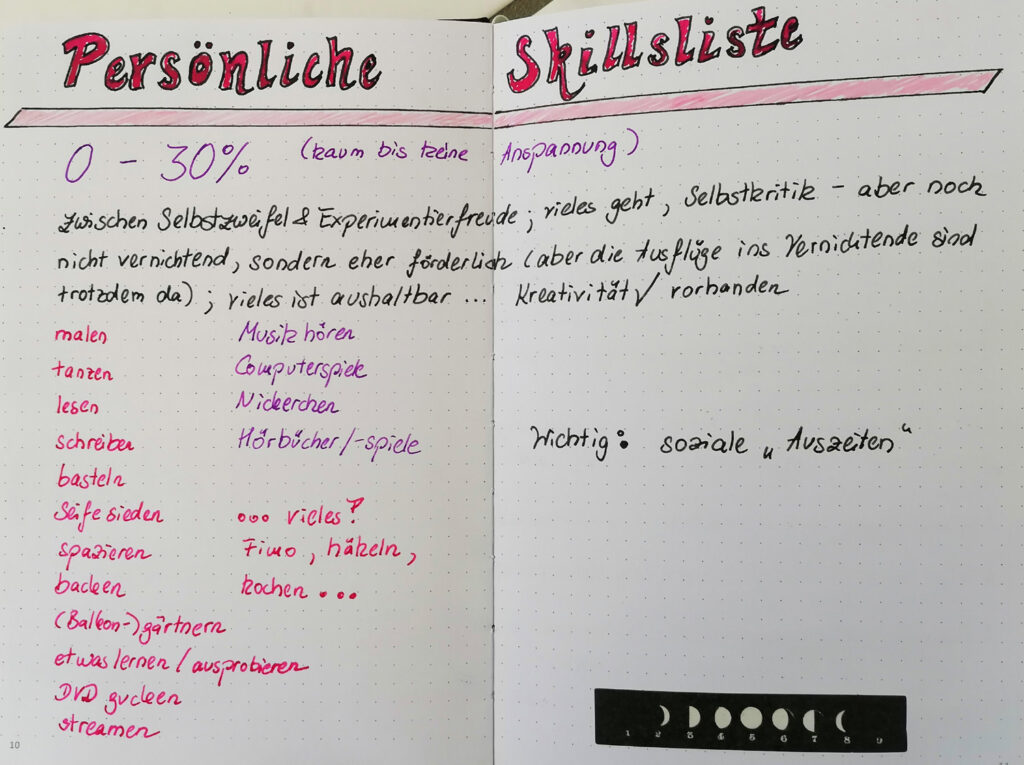 Persönliche Skillsliste
0 - 30% (kaum bis keine Anspannung)
zwischen Selbstzweifel & Experimentierfreude ; vieles geht , Selbstkritik - aber noch
nicht vernichtend, sondern eher förderlich (aber die Ausflüge ins Vernichtende sind
trotzdem da) ; vieles ist aushaltbar ... Kreativität ✓ vorhanden
malen Musik hören
tanzen Computerspiele
lesen Nickerchen
schreiben Hörbücher/-spiele
Wichtig: soziale „Auszeiten"
basteln
Seife sieden ... vieles?
spazieren Fimo, häkeln,
backen kochen ...
(Balkon-)gärtnern
etwas lernen / ausprobieren
DVD gucken
streamen
1 2 3 4 5 6 7 8 9
10